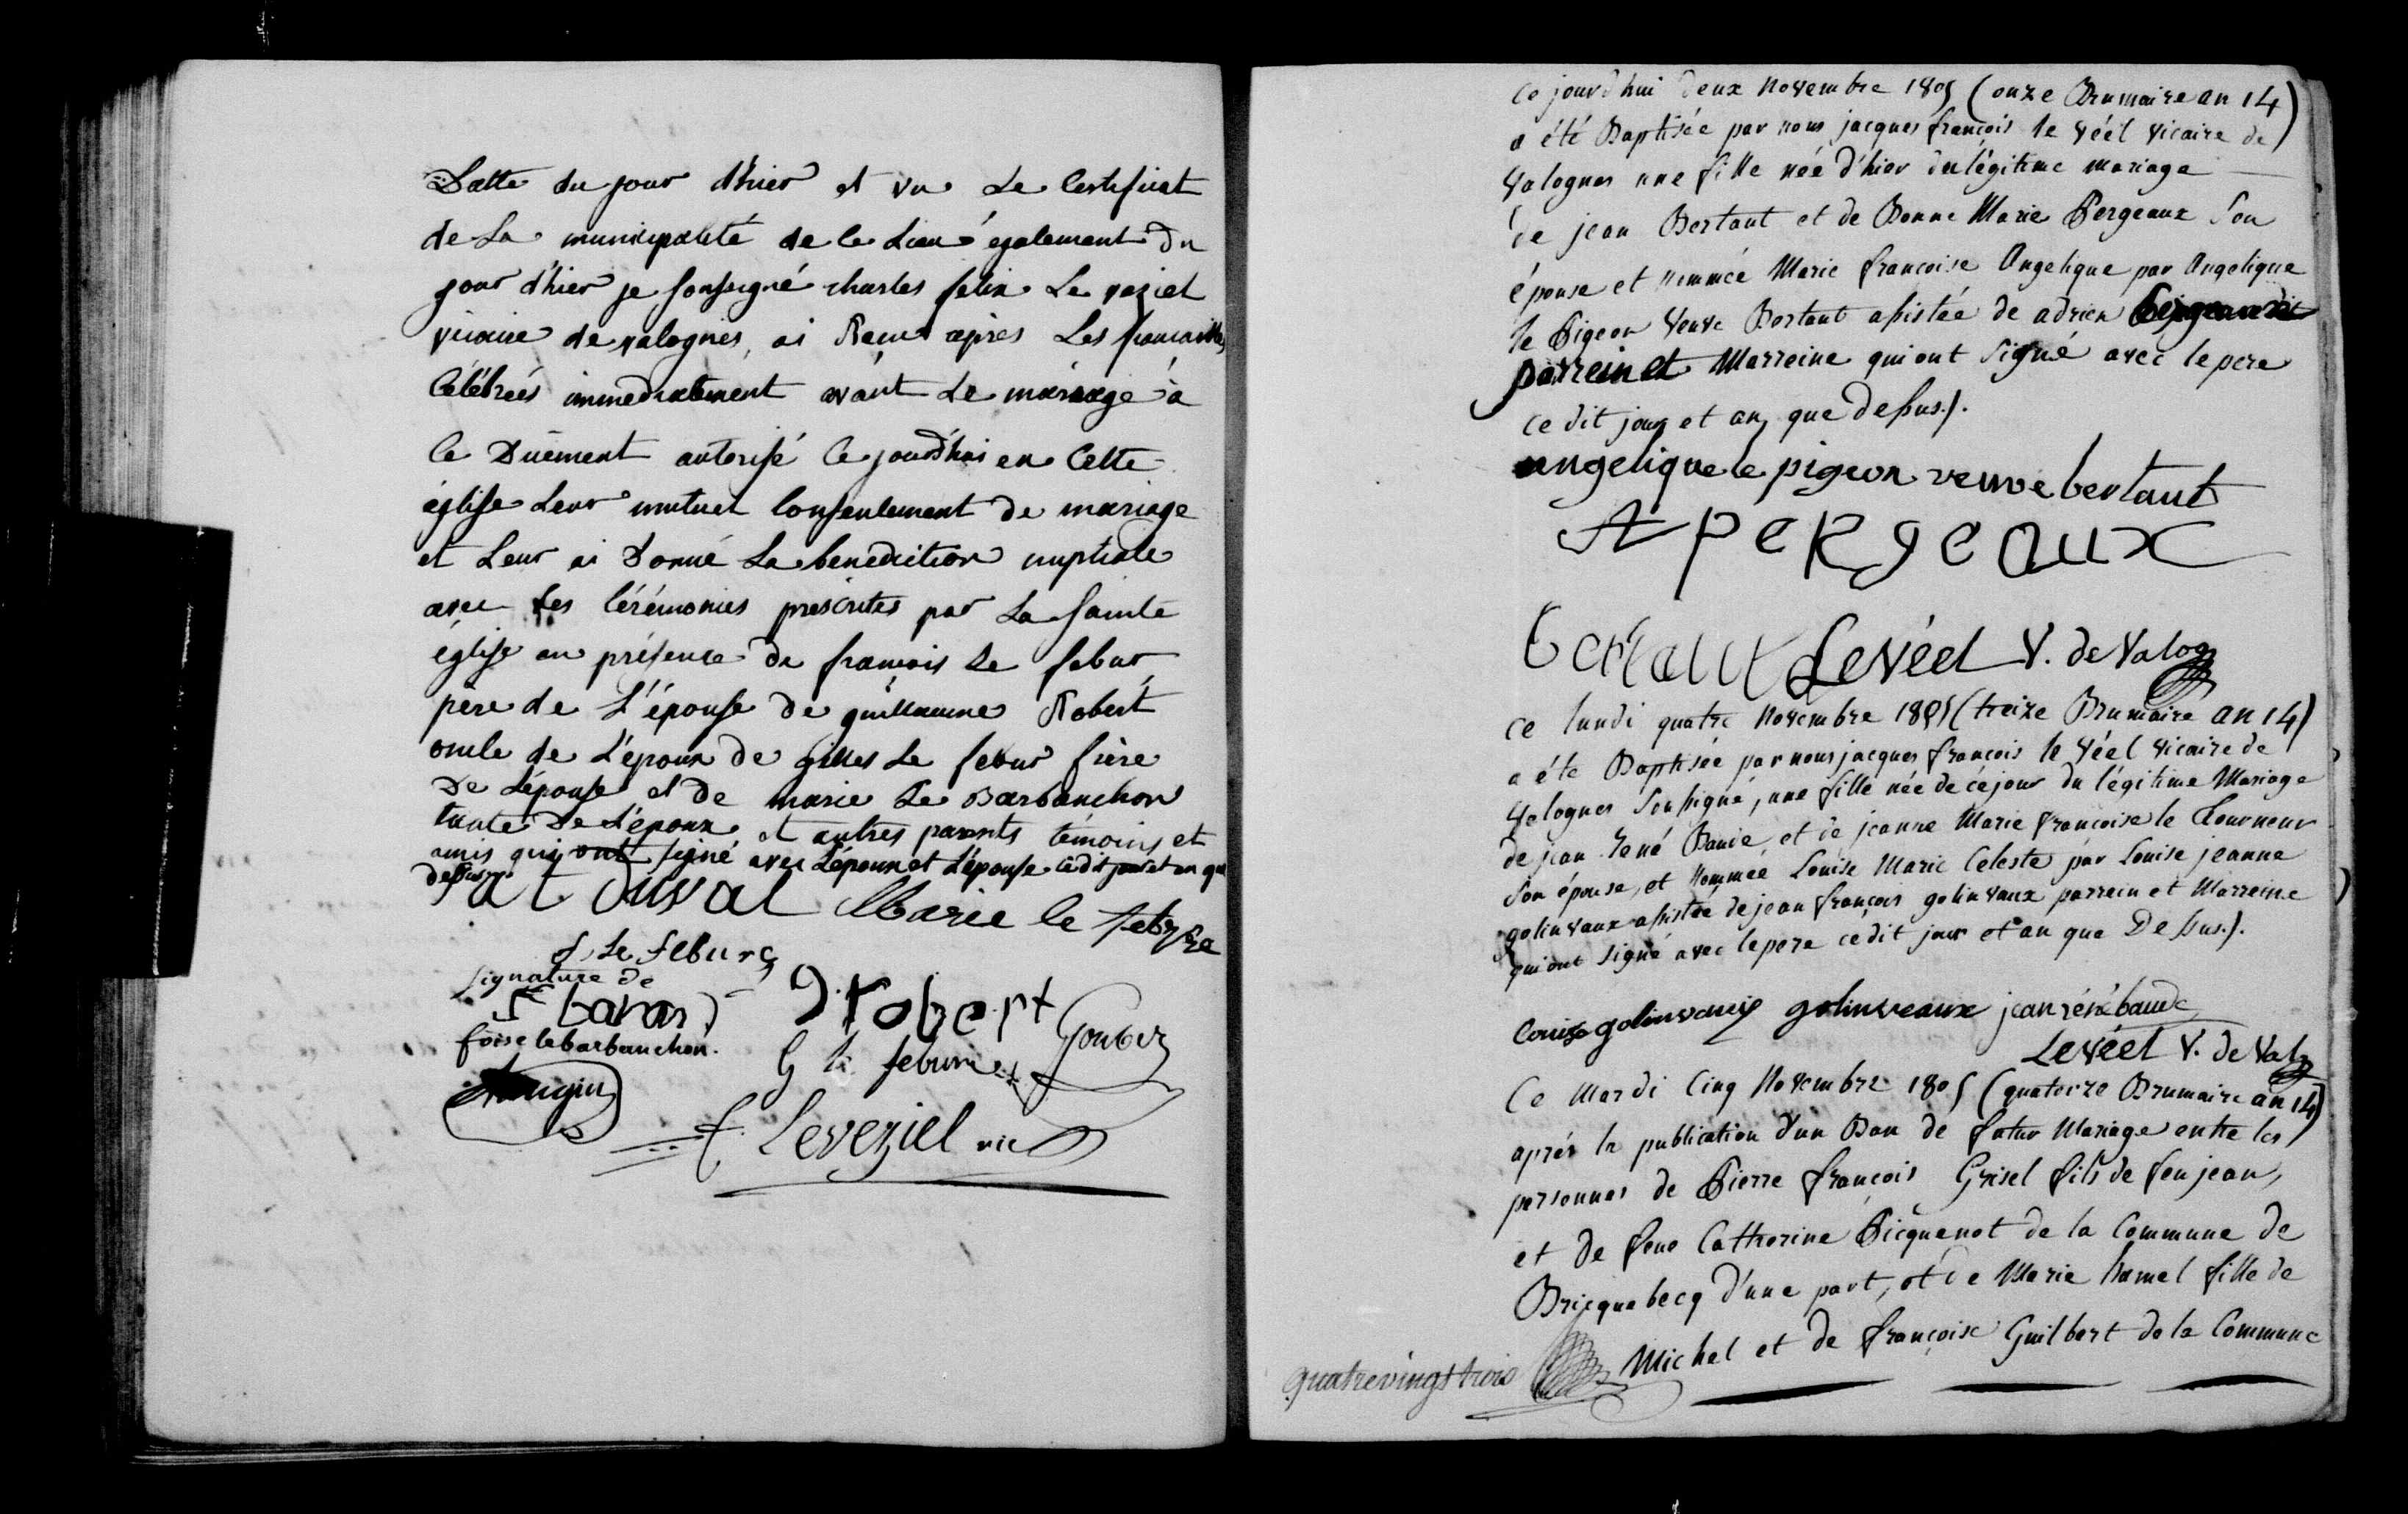 Datte du jour d'hier et vu Le Certificat
de La municipalité de ce Lieu également du
jour d'hier je soussigné charles felix Le veziel
vicaire de valognes, ai Reçu après Les fiancailles
Célébrées immediatement avant Le mariage à
ce Duêment autorisé Ce jourd'hui en Cette
église Leur mutuel Consentement de mariage
et Leur ai Donné La benediction nuptiale
avec Les Cérémonies prescrites par La sainte
église en présence de francois Le febvre
père de L'épouse de guillaume Robert
oncle de L'époux de gilles Le febvre frère
De L'épouse et de marie Le Barbanchon
tante De L'époux et autres parents témoins et
amis qui ont signé avec L'époux et L'épouse cedit jour et an que
dessus
duval Marie le febvre
f Le febure
signature de
D. robert
foise lebarbanchon. Gouber
G le febure
F. Leveziel vic
Ce jourd'hui deux Novembre 1805 (onze Brumaire an 14)
a été Baptisée par nous jacques françois le Véel Vicaire de
Valognes une fille née d'hier du légitime mariage
de jean Bertaut et de Bonne Marie Pergeaux Son
épouse et nommée Marie françoise Angelique par Angelique
le Pigeon Veuve Bertaut assistée de adrien
parrein et Marreine qui ont signé avec le pere
ce dit jour et an que dessus./.
angelique le pigeon veuve bertaut
A pergeaux
bertaut Levéel V. de Valog
Ce lundi quatre Novembre 1805 (treize Brumaire an 14)
a été Baptisée par nous jacques françois le Véel Vicaire de
Valognes Soussigné, une fille née de cejour du légitime Mariage
de jean René Baude, et de jeanne Marie françoise le Tourneur
Son épouse, et Nommée Louise Marie Celeste par Louise jeanne
golinvaux assistée de jean françois golinvaux parrein et Marreine
qui ont signé avec le pere cedit jour et an que Dessus./.
Louise golinvaux golinveaux jean réné baude
Levéel V. de Val
Ce Mardi Cinq Novembre 1805 (quatorze Brumaire an 14)
aprés la publication d'un Ban de futur Mariage entre les
personnes de Pierre françois Grisel fils de feu jean,
et de feue Catherine Picquenot de la Commune de
Bricquebecq d'une part, et de Marie hamel fille de
Michel et de françoise Guilbert de la Commune
quatrevingt trois